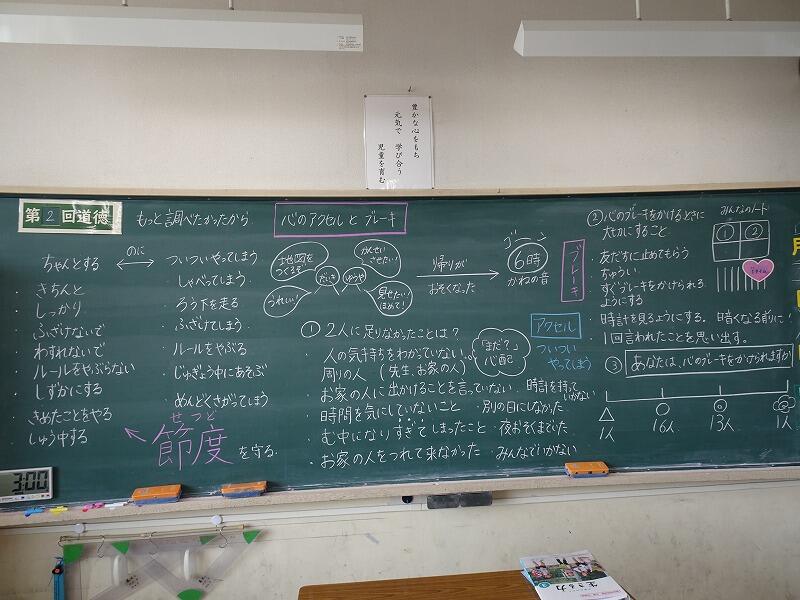 豊かな心をもち
元気で 学び合う
児童を育む
第2回道徳
もっと調べたかったから
心のアクセルとブレーキ
ちゃんとする
きちんと
しっかり
ふざけないで
わすれないで
ルールをやぶらない
しずかにする
きめたことをやる
しゅう中する
のに
ついついやってしまう
しゃべってしまう
ろう下を走る
ふざけてしまう
ルールをやぶる
じゅぎょう中にあそぶ
めんどくさがってしまう
せつど
節度を守る
地図をつくるぞ
かんせいさせたい!
だいき
ゆうや
うれしい!
見せたい!ほめて!
帰りが
おそくなった
ゴーン
6時
かねの音
①2人に足りなかったことは?
・人の気持ちをわかっていない。
周りの人(先生、お家の人)
「まだ?」心配
・お家の人に出かけることを言っていない
・時計を持っていかない
・時間を気にしていないこと ・別の日にしなかった
・む中になりすぎてしまったこと・夜おそくまでいた
・お家の人をつれて来なかった ・みんなでいかない
ブレーキ
アクセル
ついついやってしまう
②心のブレーキをかけるときに
大切にすること
・友だちに止めてもらう
ちゅうい
・すぐブレーキをかけられる
ようにする
・時計を見るようにする。暗くなる前に!
・1回言われたことを思い出す。
みんなのノート
① ②
③あなたは、心のブレーキをかけられますか
△ ○ ◎
1人 16人 13人 1人
3:00
生きる力